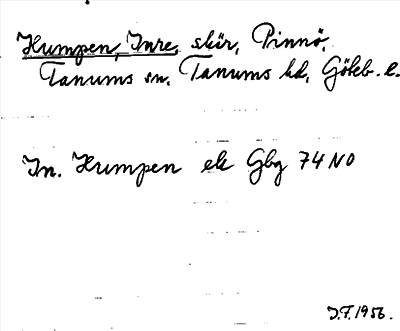 Humpen, Inre, skär, Pinnö,
Tanums sn, Tanums hd, Göteb. l.
In. Humpen ek Gbg 74 NO
J.F. 1956.